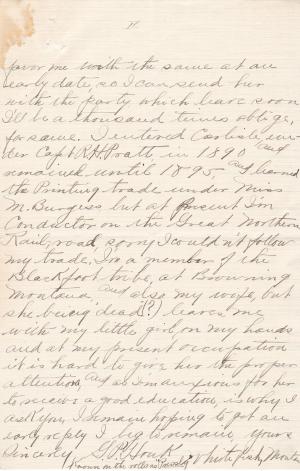 favor me with the same at an
early date, so I can send her
with the party which leave soon
I'll be a thousand times oblige,
for same. I entered Carlisle un-
der Capt R.H. Pratt, in 1890 and
remained until 1895 and learned
the Printing trade under Miss
M. Burgess but at present I'm
Conductor on the Great Northern
Rail, road, sorry I could n't follow
my trade, I'm a member of the
Blackfoot tribe, at Browning
Montana, and also my wife, but
she being dead (?) leaves me
with my little girl, on my hands
and at my present occupation
it is hard to give her the proper
attention, and as I'm anxious for her
to receive a good education, is why I
ask you, I remain hoping to get an
early reply I beg to remain, yours
Sincerely
Whitefish, Montana
Known on the rolls as